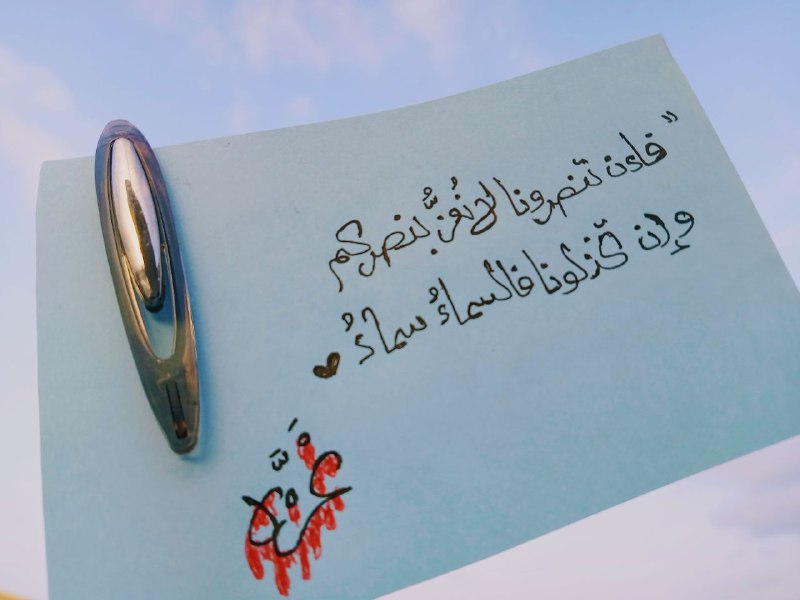 "فإن تنصرونا لا نُعَزُّ بنصركم
وإن تخذلونا فالسماءُ سماءُ
غزَّة